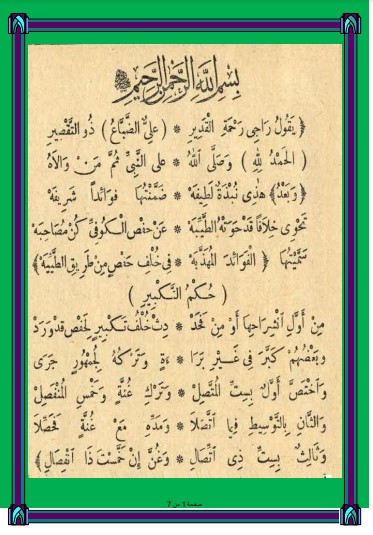 بِسْمِ اللَّهِ الرَّحْمَنِ الرَّحِيمِ
﴿ يَقُولُ رَاجِى رَحْمَةِ الْقَدِيرِ * (عَلِيٌّ الضَّبَّاعُ) ذُو التَّقْصِيرِ
( الْحَمْدُ لِلَّهِ ) وَصَلَّى اللَّهُ * عَلَى النَّبِيِّ ثُمَّ مَنْ وَالاَهُ
﴿وَبَعْدُ﴾ هٰذِى نُبْذَةٌ لَطِيفَهْ * ضَمَّنْتُهَا فَوَائِداً شَرِيفَهْ
تَحْوِى خِلَافاً قَدْ حَوَتْهُ الطَّيِّبَهْ * عَنْ حَفْصٍ الْكُوفِيِّ كُنْ مُصَاحِبَهْ
سَمَّيْتُهَا ﴿ الْفَوَائِدَ الْمُهَذَّبَهْ * فِى خُلْفِ حَفْصٍ مِنْ طَرِيقِ الطَّيِّبَهْ﴾
( حُكْمُ التَّكْبِيرِ )
مِنْ أَوَّلِ انْشِرَاحِهَا أَوْ مِنْ فَحَدِّ * ثْ خُلْفُ تَكْبِيرٍ لِحَفْصٍ قَدْ وَرَدْ
وَبَعْضُهُمْ كَبَّرَ فِى غَيْرِ بَرَا * ءَةٍ وَتَرْكُهُ لِجُمْهُورٍ جَرَى
وَاخْتَصَّ أَوَّلٌ بِسِتِّ الْمُتَّصِلْ * وَتَرْكِ غُنَّةٍ وَخَمْسِ الْمُنْفَصِلْ
وَالثَّانِ بِالتَّوْسِيطِ فِيمَا اتَّصَلَا * وَمَدِّهِ مَعْ غُنَّةٍ فَحَصِّلَا
وَثَالِثٌ بِسِتِّ ذِى اتِّصَالِ * وَغُنَّ إِنْ خَمَّسْتَ ذَا انْفِصَالِ﴾
صفحة 1 من 7